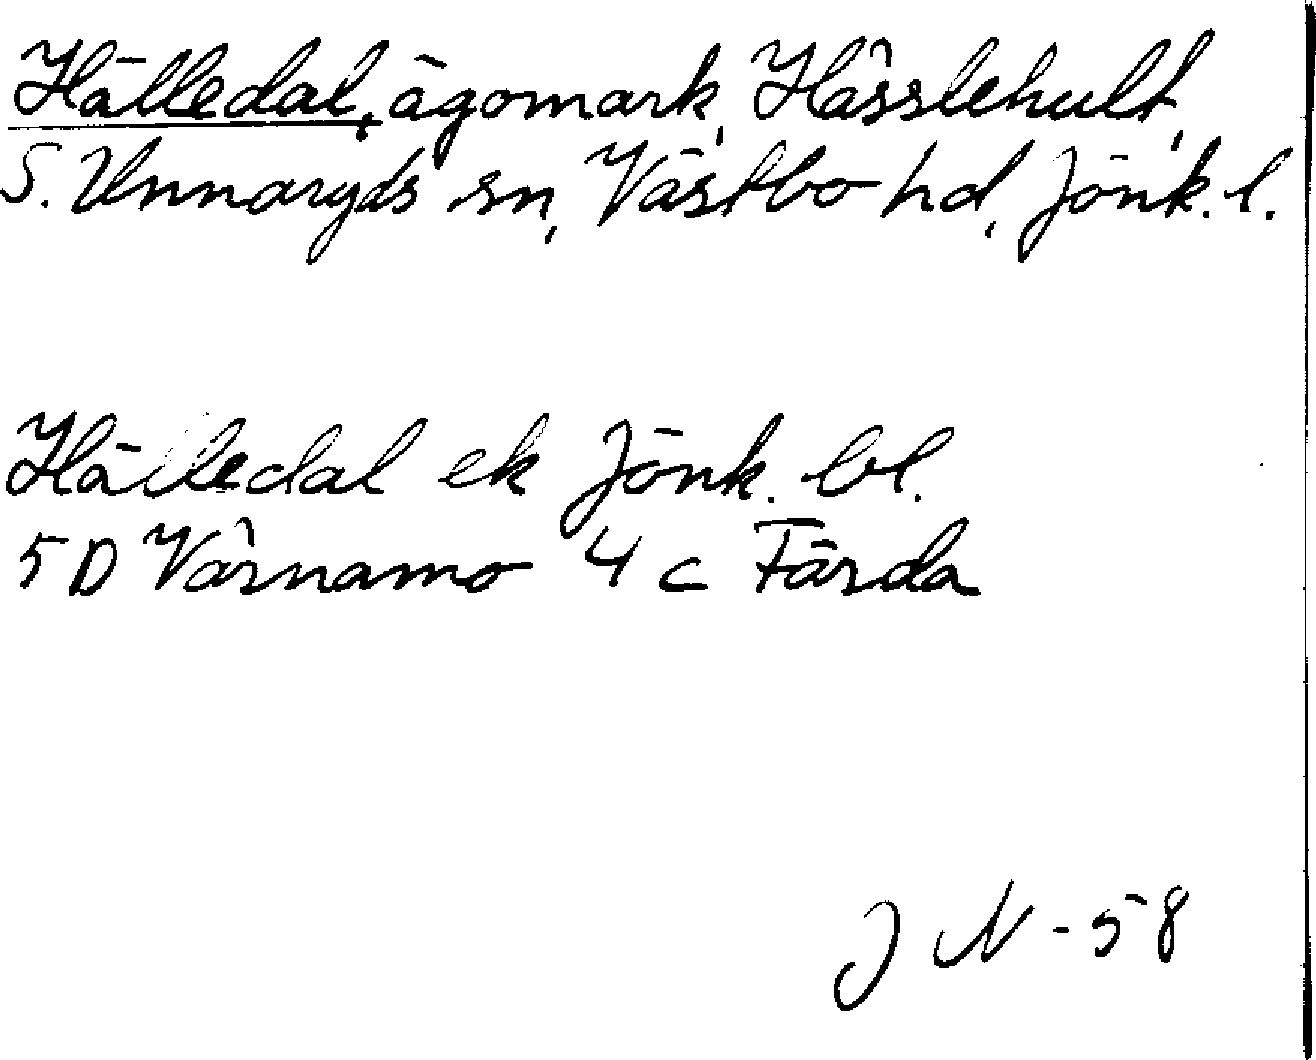 Hälledal, ägomark, Hässlehult,
S. Unnaryds sn, Västbo hd, Jönk. l.
Hälledal ek Jönk. bl.
5D Värnamo 4c Färda
J N - 58